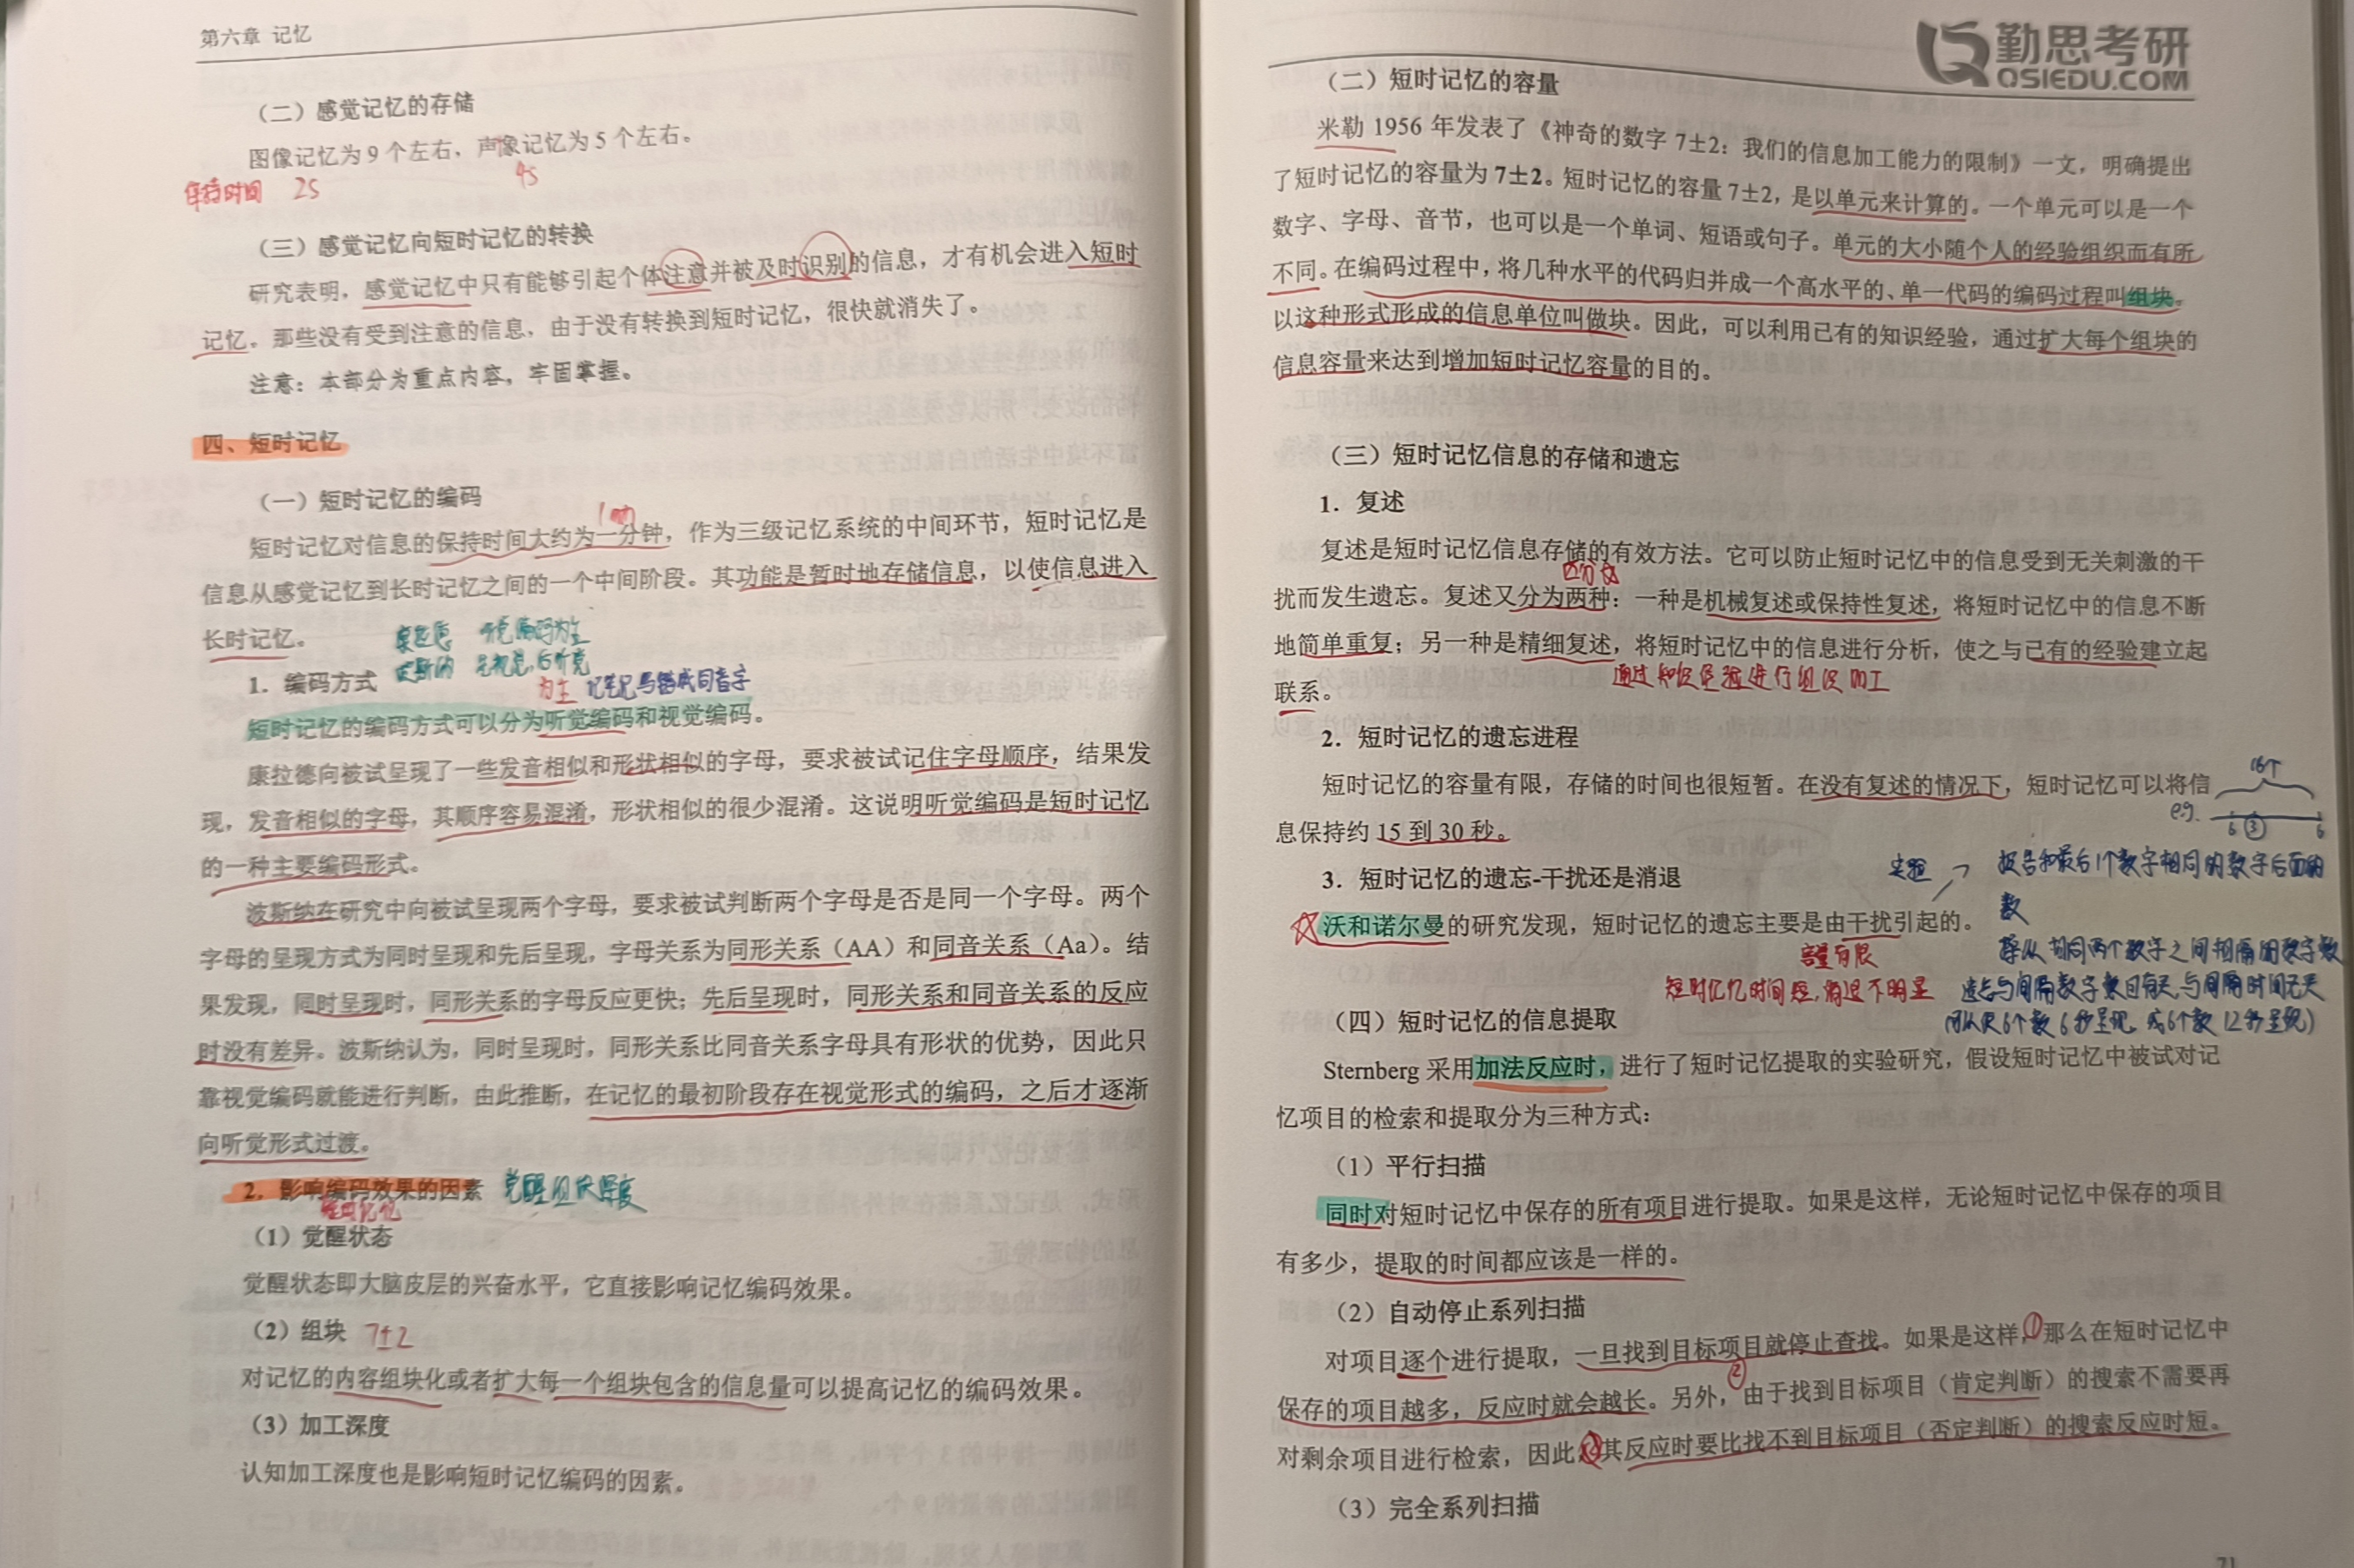 第六章 记忆
（二）感觉记忆的存储
图像记忆为 9 个左右，声像记忆为 5 个左右。
保持时间 2S 4S
（三）感觉记忆向短时记忆的转换
研究表明，感觉记忆中只有能够引起个体注意并被及时识别的信息，才有机会进入短时
记忆。那些没有受到注意的信息，由于没有转换到短时记忆，很快就消失了。
注意：本部分为重点内容，牢固掌握。
四、短时记忆
（一）短时记忆的编码
短时记忆对信息的保持时间大约为一分钟，作为三级记忆系统的中间环节，短时记忆是
信息从感觉记忆到长时记忆之间的一个中间阶段。其功能是暂时地存储信息，以使信息进入
长时记忆。
康拉德 听觉编码为主
波斯纳 先视觉，后听觉
为主 记笔记写错成同音字
1．编码方式
短时记忆的编码方式可以分为听觉编码和视觉编码。
康拉德向被试呈现了一些发音相似和形状相似的字母，要求被试记住字母顺序，结果发
现，发音相似的字母，其顺序容易混淆，形状相似的很少混淆。这说明听觉编码是短时记忆
的一种主要编码形式。
波斯纳在研究中向被试呈现两个字母，要求被试判断两个字母是否是同一个字母。两个
字母的呈现方式为同时呈现和先后呈现，字母关系为同形关系（AA）和同音关系（Aa）。结
果发现，同时呈现时，同形关系的字母反应更快；先后呈现时，同形关系和同音关系的反应
时没有差异。波斯纳认为，同时呈现时，同形关系比同音关系字母具有形状的优势，因此只
靠视觉编码就能进行判断，由此推断，在记忆的最初阶段存在视觉形式的编码，之后才逐渐
向听觉形式过渡。
2．影响编码效果的因素 觉醒组块深度
短时记忆
（1）觉醒状态
觉醒状态即大脑皮层的兴奋水平，它直接影响记忆编码效果。
（2）组块 7±2
对记忆的内容组块化或者扩大每一个组块包含的信息量可以提高记忆的编码效果。
（3）加工深度
认知加工深度也是影响短时记忆编码的因素。
勤思考研
QSIEDU.COM
（二）短时记忆的容量
米勒 1956 年发表了《神奇的数字 7±2：我们的信息加工能力的限制》一文，明确提出
了短时记忆的容量为 7±2。短时记忆的容量 7±2，是以单元来计算的。一个单元可以是一个
数字、字母、音节，也可以是一个单词、短语或句子。单元的大小随个人的经验组织而有所
不同。在编码过程中，将几种水平的代码归并成一个高水平的、单一代码的编码过程叫组块。
以这种形式形成的信息单位叫做块。因此，可以利用已有的知识经验，通过扩大每个组块的
信息容量来达到增加短时记忆容量的目的。
（三）短时记忆信息的存储和遗忘
1．复述
复述是短时记忆信息存储的有效方法。它可以防止短时记忆中的信息受到无关刺激的干
扰而发生遗忘。复述又分为两种：一种是机械复述或保持性复述，将短时记忆中的信息不断
地简单重复；另一种是精细复述，将短时记忆中的信息进行分析，使之与已有的经验建立起
联系。
通过知识经验进行组织加工
2．短时记忆的遗忘进程
短时记忆的容量有限，存储的时间也很短暂。在没有复述的情况下，短时记忆可以将信
息保持约 15 到 30 秒。
16个
eg. 6 ③ 6
3．短时记忆的遗忘-干扰还是消退
实验 → 报告和最后1个数字相同的数字后面的
数
沃和诺尔曼的研究发现，短时记忆的遗忘主要是由干扰引起的。
容量有限
短时记忆时间短，消退不明显
相同两个数字之间相隔的数字数
遗忘与间隔数字数目有关，与间隔时间无关
（四）短时记忆的信息提取
Sternberg 采用加法反应时，进行了短时记忆提取的实验研究，假设短时记忆中被试对记
忆项目的检索和提取分为三种方式：
（1）平行扫描
同时对短时记忆中保存的所有项目进行提取。如果是这样，无论短时记忆中保存的项目
有多少，提取的时间都应该是一样的。
（2）自动停止系列扫描
对项目逐个进行提取，一旦找到目标项目就停止查找。如果是这样，①那么在短时记忆中
保存的项目越多，反应时就会越长。另外，②由于找到目标项目（肯定判断）的搜索不需要再
对剩余项目进行检索，因此，其反应时要比找不到目标项目（否定判断）的搜索反应时短。
（3）完全系列扫描
71